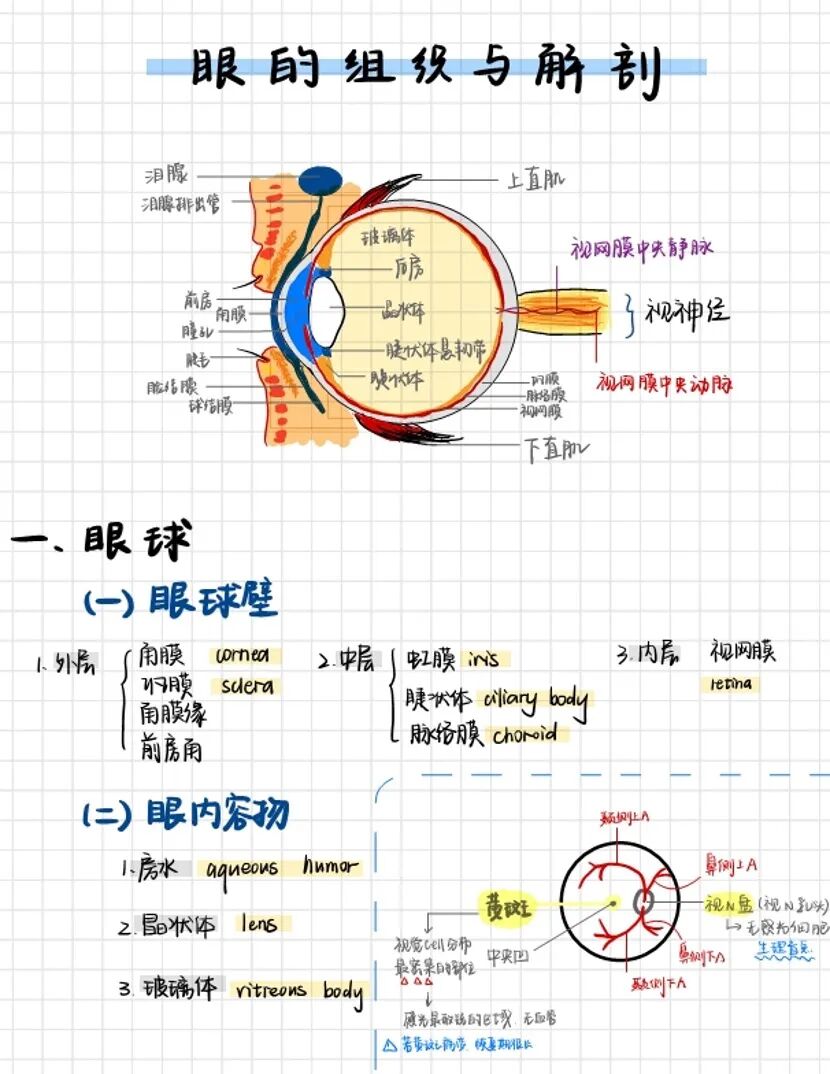 眼的组织与解剖
泪腺
泪腺排出管
上直肌
玻璃体
后房
视网膜中央静脉
前房
角膜
瞳孔
晶状体
视神经
睫毛
睫状体悬韧带
睑结膜
睫状体
球结膜
巩膜
脉络膜
视网膜
视网膜中央动脉
下直肌
一、眼球
(一) 眼球壁
1. 外层
角膜 cornea
巩膜 sclera
角膜缘
前房角
2. 中层
虹膜 iris
睫状体 ciliary body
脉络膜 choroid
3. 内层 视网膜
retina
(二) 眼内容物
1. 房水 aqueous humor
2. 晶状体 lens
3. 玻璃体 vitreous body
颞侧上A
鼻侧上A
黄斑
视N盘 (视N乳头)
无感光细胞
生理盲点
视觉cell分布
最密集的部位
中央凹
鼻侧下A
颞侧下A
感光最敏锐的区域 无血管